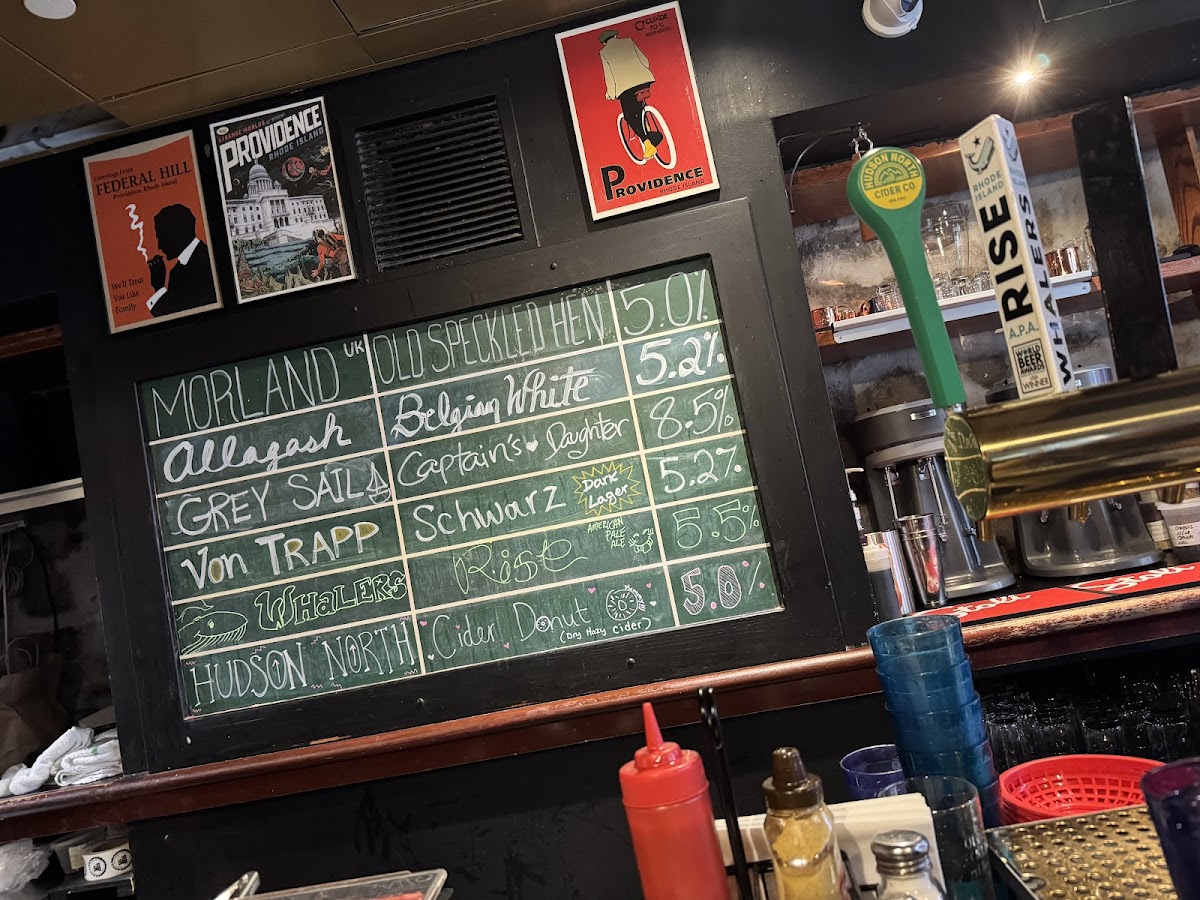 Greetings From
FEDERAL HILL
Providence, Rhode Island
We'll Treat
You Like
Family
STRANGE WORLDS
PROVIDENCE
RHODE ISLAND
CYCLOIDE
PROVIDENCE
RHODE ISLAND
MORLAND UK OLD SPECKLED HEN 5.0%
Allagash Belgian White 5.2%
GREY SAIL Captain's Daughter 8.5%
Von TRAPP Schwarz Dark Lager 5.2%
WHALERS Rise AMERICAN PALE ALE 5.5%
HUDSON NORTH Cider Donut (Dry Hazy cider) 5.0%
HUDSON NORTH
CIDER CO
RHODE
ISLAND
RISE
A.P.A.
WORLD
BEER
AWARDS
WINNER
WHALERS
Stoli
Stoli